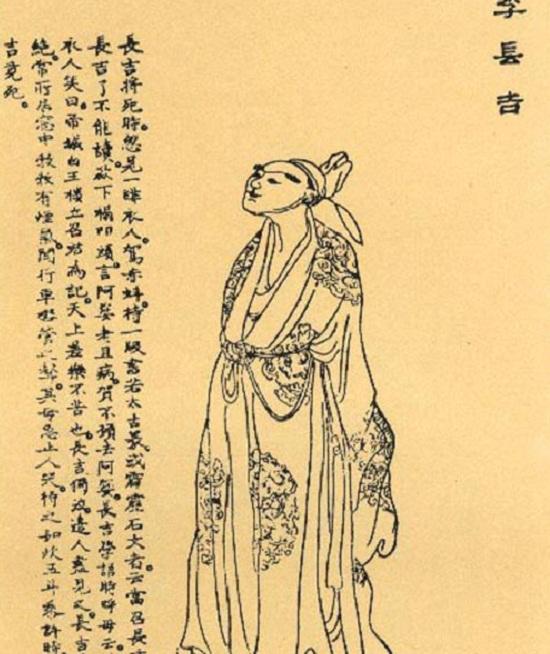 李長吉
長吉將死時。忽見一緋衣人。駕赤虬持一版書若太古篆或霹靂石文者。云當召長
長吉了不能讀。欻下榻叩頭言阿㜷老且病。賀不願去阿㜷。長吉學語時呼母云。
衣人笑曰。帝城白玉樓立召君為記。天上差樂不苦也。長吉獨泣。邊人盡見之。長吉
絕常所居窗中勃勃有煙氣。聞行車嘒管之聲。其母急止人哭待之如炊五斗黍許時
吉竟死。